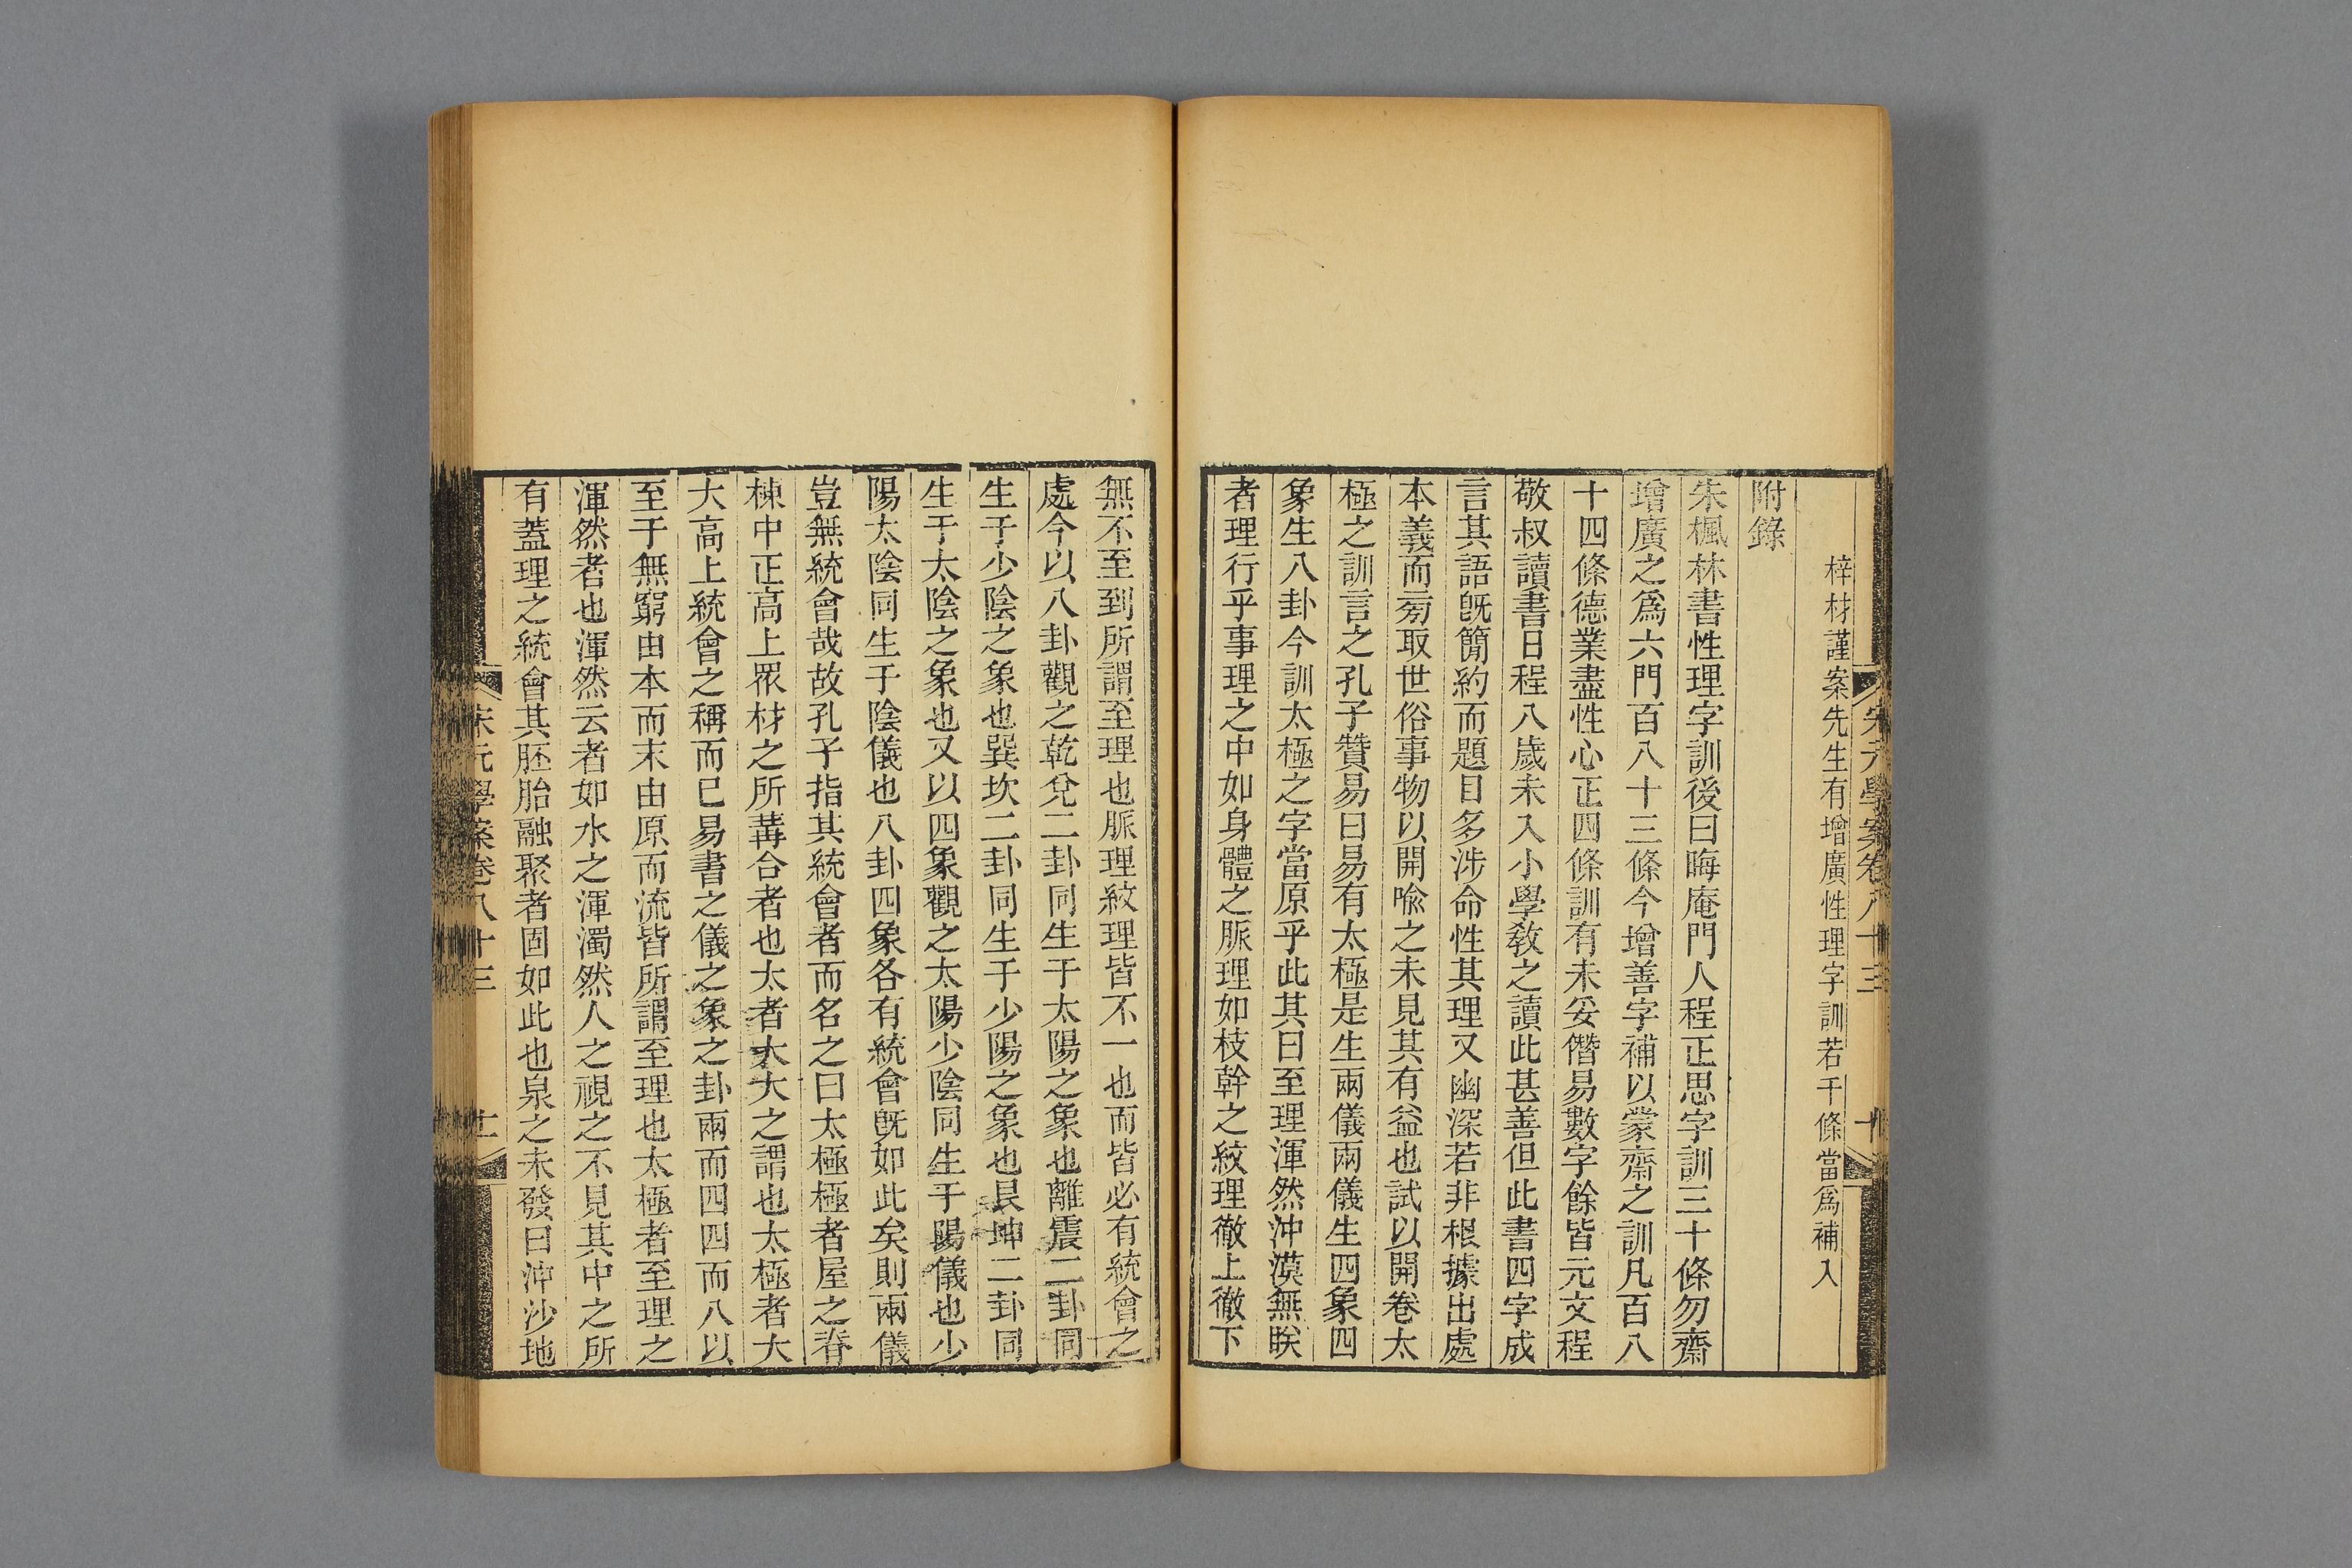 宋元學案卷八十三 十
梓材謹案先生有增廣性理字訓若干條當爲補入
附錄
朱楓林書性理字訓後曰晦庵門人程正思字訓三十條勿齋
增廣之爲六門百八十三條今增善字補以蒙齋之訓凡百八
十四條德業盡性心正四條訓有未妥僭易數字餘皆元文程
敬叔讀書日程八歲未入小學敎之讀此甚善但此書四字成
言其語旣簡約而題目多涉命性其理又幽深若非根據出處
本義而㫄取世俗事物以開喩之未見其有益也試以開卷太
極之訓言之孔子贊易曰易有太極是生兩儀兩儀生四象四
象生八卦今訓太極之字當原乎此其曰至理渾然沖漠無眹
者理行乎事理之中如身體之脈理如枝幹之紋理徹上徹下
無不至到所謂至理也脈理紋理皆不一也而皆必有統會之
處今以八卦觀之乾兌二卦同生于太陽之象也離震二卦同
生于少陰之象也巽坎二卦同生于少陽之象也艮坤二卦同
生于太陰之象也又以四象觀之太陽少陰同生于陽儀也少
陽太陰同生于陰儀也八卦四象各有統會旣如此矣則兩儀
豈無統會哉故孔子指其統會者而名之曰太極極者屋之脊
棟中正高上眾材之所萃合者也太者大大之謂也太極者大
大高上統會之稱而已易書之儀之象之卦兩而四四而八以
至于無窮由本而末由原而流皆所謂至理也太極者至理之
渾然者也渾然云者如水之渾濁然人之視之不見其中之所
有蓋理之統會其胚胎融聚者固如此也泉之未發曰沖沙地
宋元學案卷八十三 十一